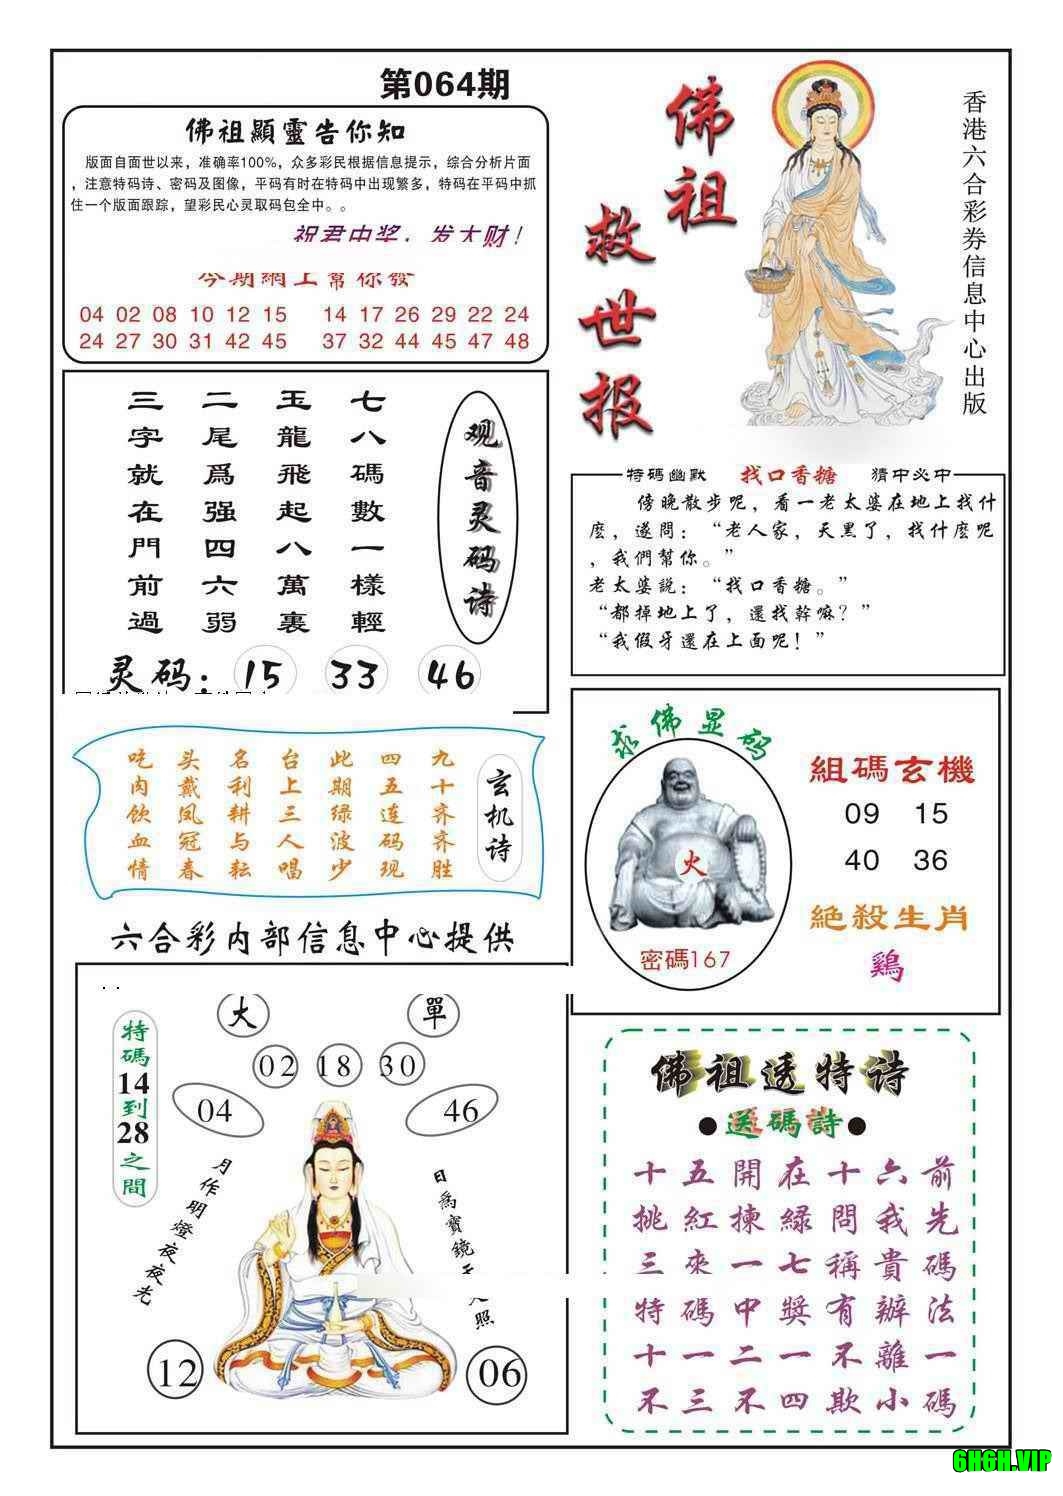 第064期
佛祖顯靈告你知
版面自面世以来，准确率100%，众多彩民根据信息提示，综合分析片面
，注意特码诗、密码及图像，平码有时在特码中出现繁多，特码在平码中抓
住一个版面跟踪，望彩民心灵取码包全中。。
祝君中奖，发大财！
今期網上幫你發
04 02 08 10 12 15 14 17 26 29 22 24
24 27 30 31 42 45 37 32 44 45 47 48
佛祖
救世报
香港六合彩券信息中心出版
七八碼數一樣輕
玉龍飛起八萬裏
二尾爲强四六弱
三字就在門前過
观音灵码诗
灵码：15 33 46
特碼幽默 找口香糖 猜中必中
傍晚散步呢，看一老太婆在地上找什
麽，遂問：“老人家，天黑了，找什麽呢
，我們幫你。”
老太婆説：“找口香糖。”
“都掉地上了，還找幹嘛？”
“我假牙還在上面呢！”
吃头名台此四九
肉戴利上期五十
饮凤耕三绿连齐
血冠与人波码齐
情春耘唱少现胜
玄机诗
求佛显码
火
密碼167
組碼玄機
09 15
40 36
絕殺生肖
鷄
六合彩内部信息中心提供
特碼14到28之間
大 單
02 18 30
04 46
月作明燈夜夜光
日爲寶鏡
照
12 06
佛祖透特诗
●送碼詩●
十五開在十六前
挑紅揀緑問我先
三來一七稱貴碼
特碼中獎有辦法
十一二一不離一
不三不四欺小碼
6H6H.VIP